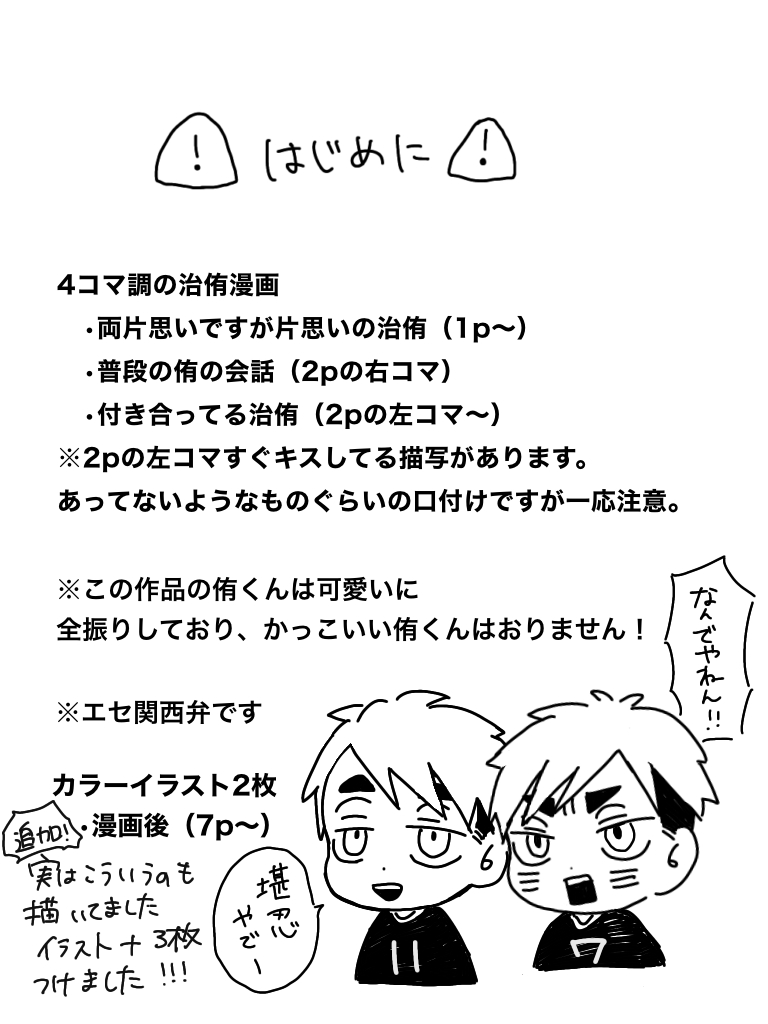 ! はじめに !
4コマ調の治侑漫画
・両片思いですが片思いの治侑（1p〜）
・普段の侑の会話（2pの右コマ）
・付き合ってる治侑（2pの左コマ〜）
※2pの左コマすぐキスしてる描写があります。
あってないようなものぐらいの口付けですが一応注意。
※この作品の侑くんは可愛いに
全振りしており、かっこいい侑くんはおりません！
なんでやねん!!
※エセ関西弁です
カラーイラスト2枚
・漫画後（7p〜）
追加!
実はこういうのも
描いてました
イラスト+3枚
つけました!!!
堪忍
やでー
11
7